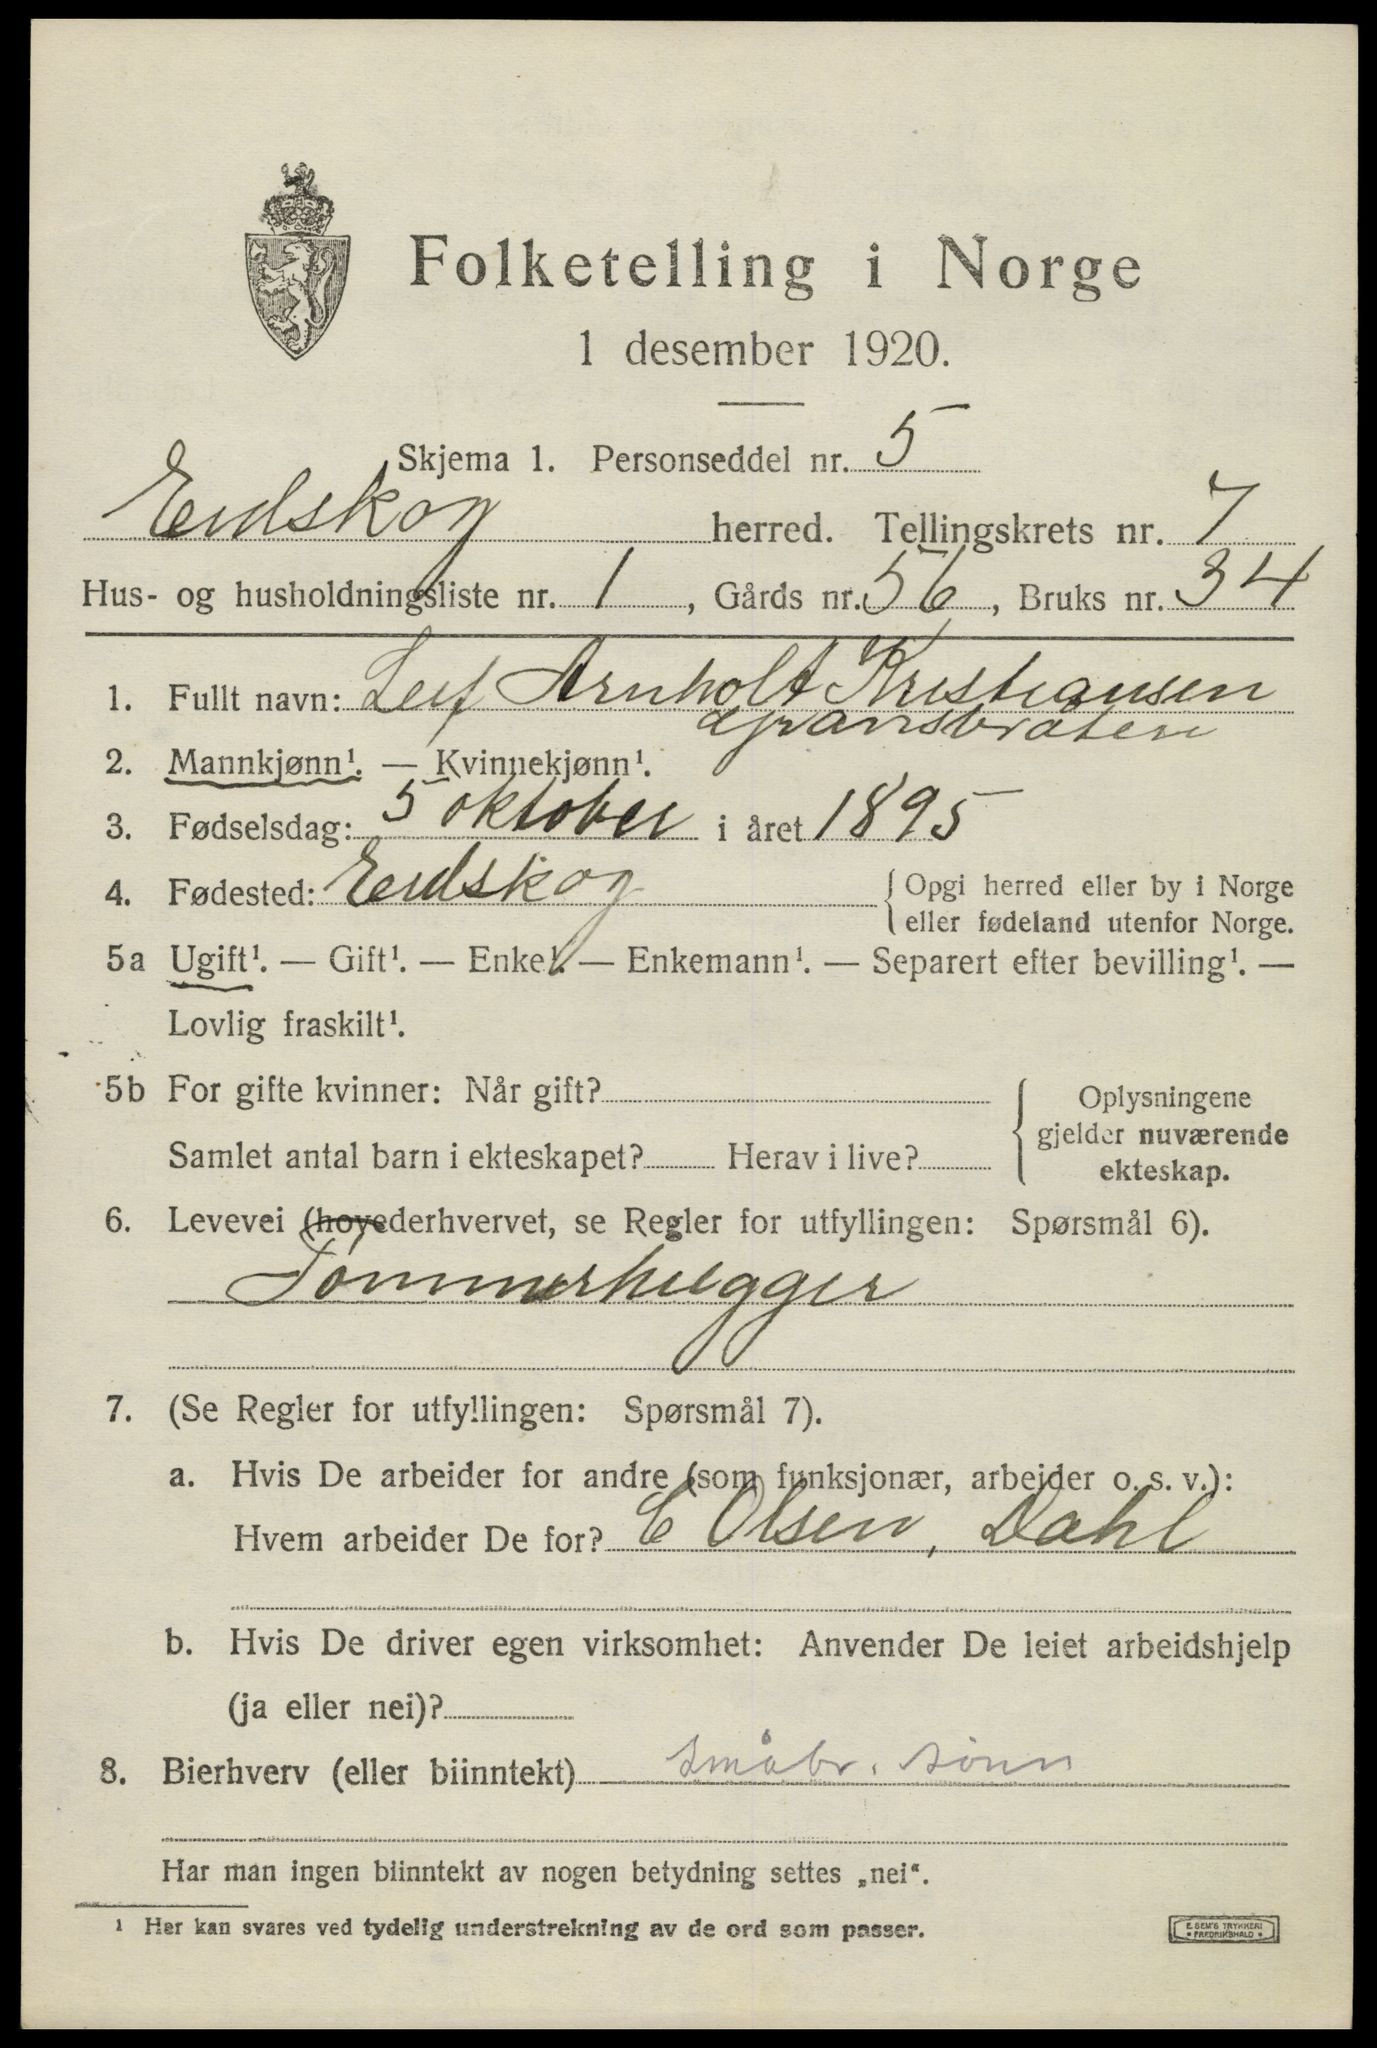 Folketelling i Norge
1 desember 1920.
Skjema 1. Personseddel nr. 5
Eidskog herred. Tellingskrets nr. 7
Hus- og husholdningsliste nr. 1, Gårds nr. 56, Bruks nr. 34
1. Fullt navn: Leif Arnholt Kristiansen
Gransbråten
2. Mannkjønn¹. — Kvinnekjønn¹.
3. Fødselsdag: 5 oktober i året 1895
4. Fødested: Eidskog { Opgi herred eller by i Norge
eller fødeland utenfor Norge.
5a Ugift¹. — Gift¹. — Enke¹. — Enkemann¹. — Separert efter bevilling¹. —
Lovlig fraskilt¹.
5b For gifte kvinner: Når gift?
Samlet antal barn i ekteskapet? Herav i live?
Oplysningene
gjelder nuværende
ekteskap.
6. Levevei (hovederhvervet, se Regler for utfyllingen: Spørsmål 6).
Tømmerhugger
7. (Se Regler for utfyllingen: Spørsmål 7).
a. Hvis De arbeider for andre (som funksjonær, arbeider o. s. v.):
Hvem arbeider De for? C Olsen, Dahl
b. Hvis De driver egen virksomhet: Anvender De leiet arbeidshjelp
(ja eller nei)?
8. Bierhverv (eller biinntekt) småbr. sønn
Har man ingen biinntekt av nogen betydning settes „nei“.
¹ Her kan svares ved tydelig understrekning av de ord som passer.
E. SEM'S TRYKKERI
• FREDRIKSHALD •